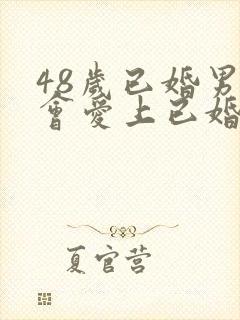 48歲已婚男
會愛上已婚
夏官营